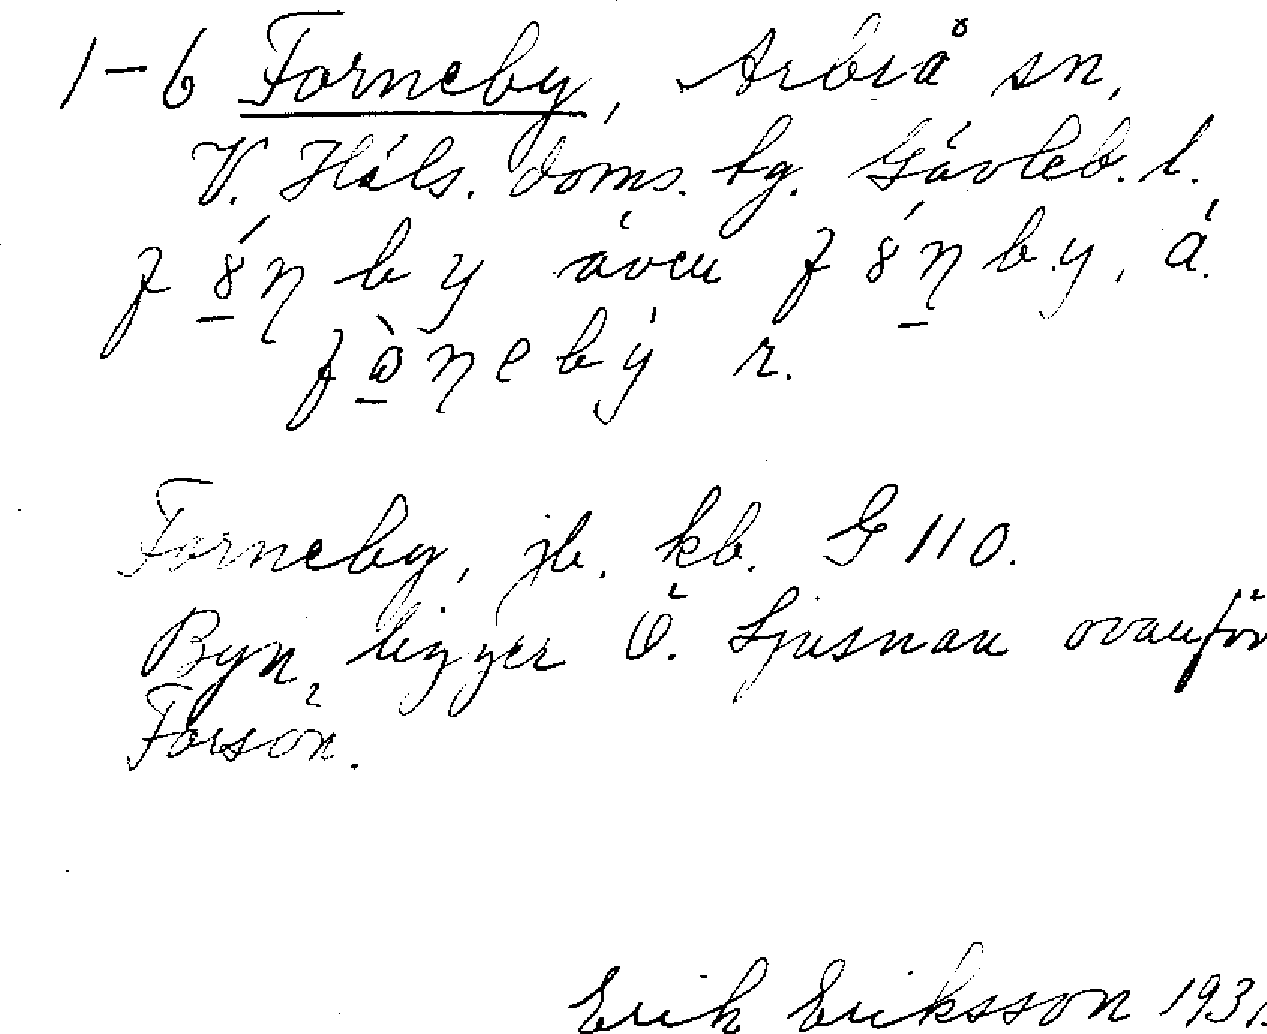 1-6 Forneby, Arbrå sn,
V. Häls. doms. tg. Gävleb. l.
även ä.
r.
Forneby, jb. kb. G 110.
Byn ligger Ö. Ljusnan ovanför
Forsön.
Erik Eriksson 1931.